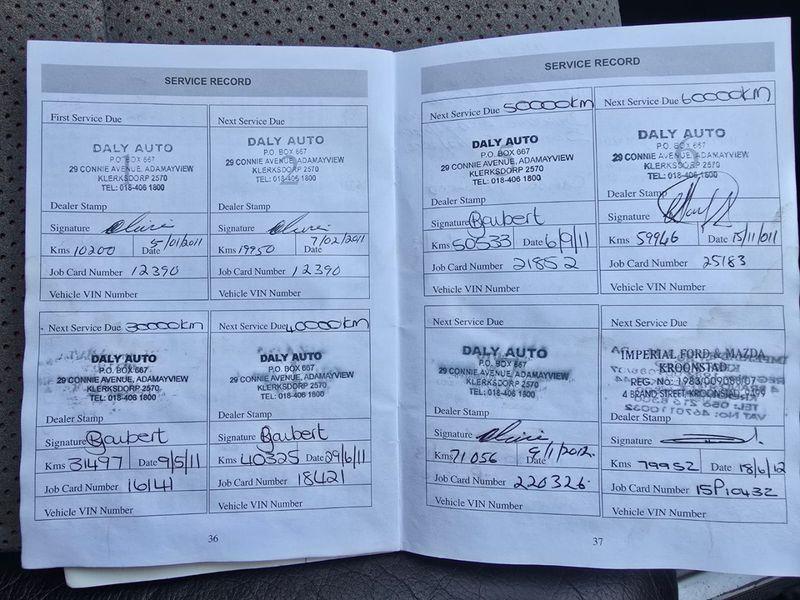 SERVICE RECORD
First Service Due
DALY AUTO
P.O. BOX 667
29 CONNIE AVENUE, ADAMAYVIEW
KLERKSDORP 2570
TEL: 018-406 1800
Dealer Stamp
Signature
Kms 10200 Date 5/01/2011
Job Card Number 12390
Vehicle VIN Number
Next Service Due
DALY AUTO
P.O. BOX 667
29 CONNIE AVENUE, ADAMAYVIEW
KLERKSDORP 2570
TEL: 018-406 1800
Dealer Stamp
Signature
Kms 19950 Date 7/02/2011
Job Card Number 12390
Vehicle VIN Number
Next Service Due 30000km
DALY AUTO
P.O. BOX 667
29 CONNIE AVENUE, ADAMAYVIEW
KLERKSDORP 2570
TEL: 018-406 1800
Dealer Stamp
Signature
Kms 31497 Date 9/5/11
Job Card Number 16141
Vehicle VIN Number
Next Service Due 40000km
DALY AUTO
P.O. BOX 667
29 CONNIE AVENUE, ADAMAYVIEW
KLERKSDORP 2570
TEL: 018-406 1800
Dealer Stamp
Signature
Kms 40325 Date 29/6/11
Job Card Number 18421
Vehicle VIN Number
36
SERVICE RECORD
Next Service Due 50000km
DALY AUTO
P.O. BOX 667
29 CONNIE AVENUE, ADAMAYVIEW
KLERKSDORP 2570
TEL: 018-406 1800
Dealer Stamp
Signature
Kms 50533 Date 6/9/11
Job Card Number 21852
Vehicle VIN Number
Next Service Due 60000km
DALY AUTO
P.O. BOX 667
29 CONNIE AVENUE, ADAMAYVIEW
KLERKSDORP 2570
TEL: 018-406 1800
Dealer Stamp
Signature
Kms 59946 Date 15/11/011
Job Card Number 25183
Vehicle VIN Number
Next Service Due
DALY AUTO
P.O. BOX 667
29 CONNIE AVENUE, ADAMAYVIEW
KLERKSDORP 2570
TEL: 018-406 1800
Dealer Stamp
Signature
Kms 71056 Date 9/1/2012.
Job Card Number 220326.
Vehicle VIN Number
Next Service Due
IMPERIAL FORD & MAZDA
KROONSTAD
REG. No: 1983/009088/07
4 BRAND STREET, KROONSTAD, 1499
Dealer Stamp
Signature
Kms 79952 Date 18/6/12
Job Card Number 15P10432
Vehicle VIN Number
37